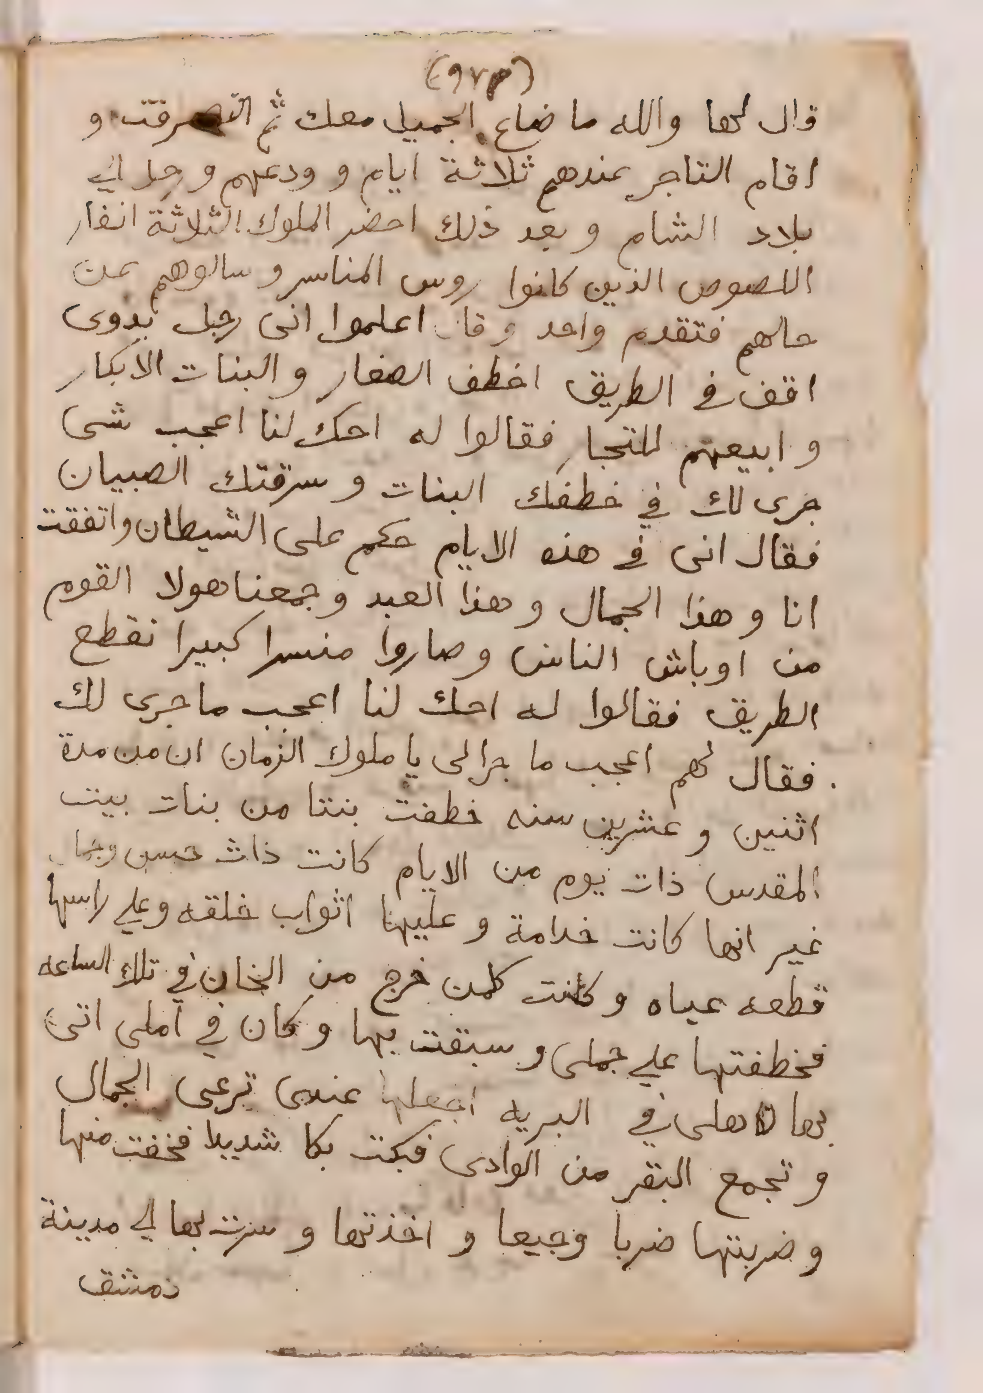 (٩٧٣)
قال لها والله ما ضاع الجميل معك ثم انصرفت و
اقام التاجر عندهم ثلاثة ايام و ودعهم و رحل الي
بلاد الشام و بعد ذلك احضر الملوك الثلاثة انفار
اللصوص الذين كانوا روس المناسر و سالوهم عن
حالهم فتقدم واحد و قال اعلموا اني رجل بدوى
اقف في الطريق اخطف الصغار و البنات الابكار
و ابيعهم للتجار فقالوا له احك لنا اعجب شى
جرى لك في خطفك البنات و سرقتك الصبيان
فقال انى في هذه الايام حكم على الشيطان واتفقت
انا و هذا الجمال و هذا العبد و جمعنا هولا القوم
من اوباش الناس و صاروا منسرا كبيرا نقطع
الطريق فقالوا له احك لنا اعجب ما جرى لك
فقال لهم اعجب ما جرالى يا ملوك الزمان ان من مدة
اثنين و عشرين سنه خطفت بنتا من بنات بيت
المقدس ذات يوم من الايام كانت ذات حسن وجمال
غير انها كانت خدامة و عليها اثواب خلقه وعلي راسها
قطعه عباه و كانت كلمن خرج من الخان في تلك الساعه
فخطفتها علي جملى و سبقت بها و كان في املى اتى
بها لاهلى في البريه اجعلها عندى ترعى الجمال
و تجمع البقر من الوادى فبكت بكا شديدا فخفت منها
و ضربتها ضربا وجيعا و اخذتها و سرت بها الي مدينة
دمشق